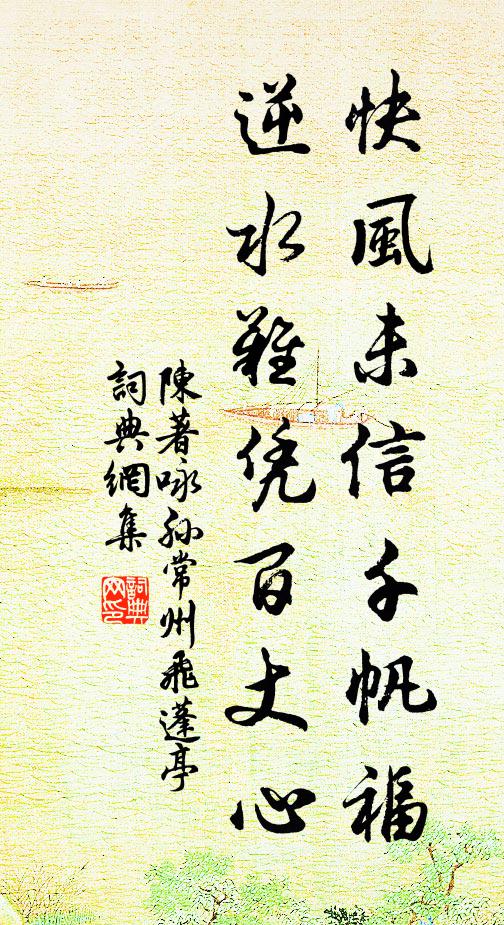 快風未信千帆福
逆水難凭百丈心
陳著咏孙常州飛蓬亭
詞典網集